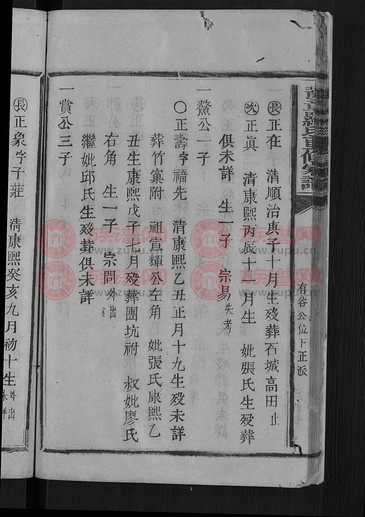 羅氏
有谷公位下正派
長正在 清順治庚子十月生歿葬石城高田止
次正真 清康熙丙辰十一月生 妣張氏生歿葬
俱未詳 生一子 宗易失考
一鰲公一子
○正壽字禧先 清康熙乙丑正月十九生歿未詳
葬竹窠附 祖宣輝公左角 妣張氏康熙乙
丑生康熙戊子七月歿葬團坑祔 叔妣廖氏
右角 生一子 宗問外出
繼妣邱氏生歿葬俱未詳
一賞公三子
長正象字子莊 清康熙癸亥九月初十生外出
族譜網